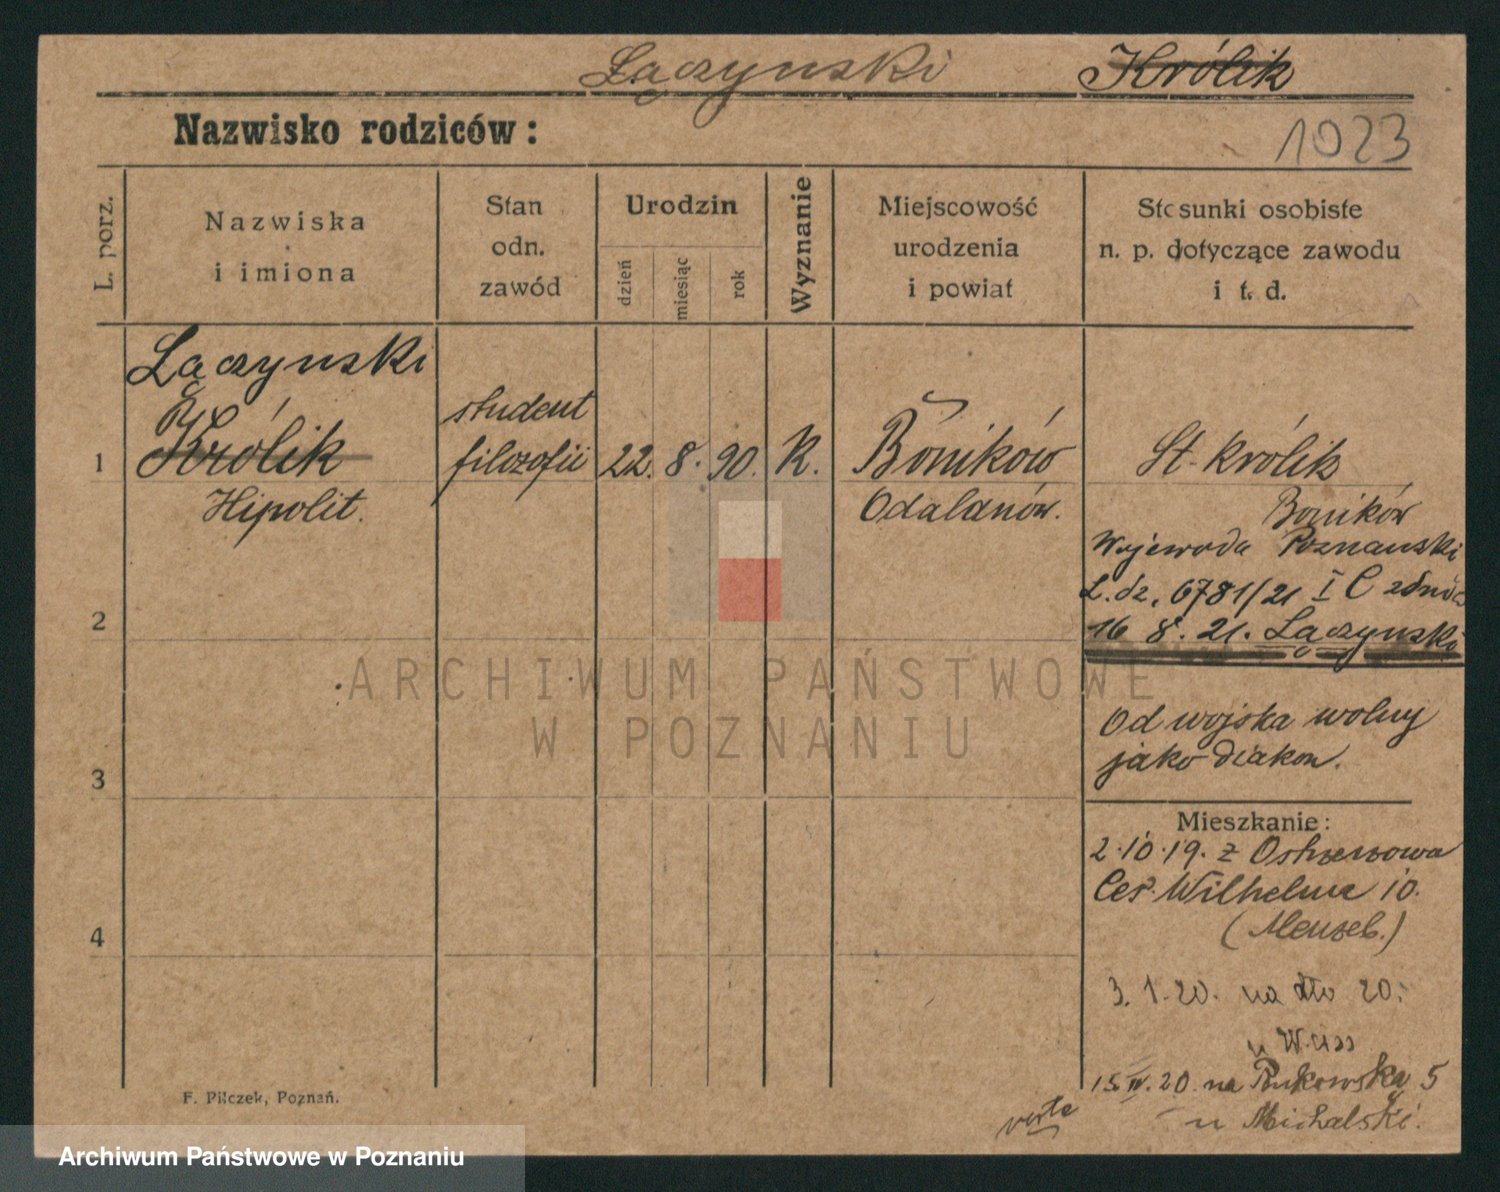 Łączynski Królik
Nazwisko rodziców:
1023
L. porz.
Nazwiska
i imiona
Stan
odn.
zawód
Urodzin
dzień
miesiąc
rok
Wyznanie
Miejscowość
urodzenia
i powiat
Stosunki osobiste
n. p. dotyczące zawodu
i t. d.
Łączynski
1 Królik
Hipolit.
student
filozofii
22. 8. 90.
K.
Boników
Odalanów.
St. Królik
Boników
Wojewoda Poznanski
L. dz. 6781/21 I C
16 8. 21. Łączynski
Od wojska wolny
jako diakon.
2
3
4
Mieszkanie:
2.10.19. z Ostrzeszowa
Ces. Wilhelma 10.
3. 1. 20. na dto 20.
u
15. IV. 20. na 5
u Michalski.
verte
F. Pilczek, Poznań.
ARCHIWUM PAŃSTWOWE
W POZNANIU
Archiwum Państwowe w Poznaniu